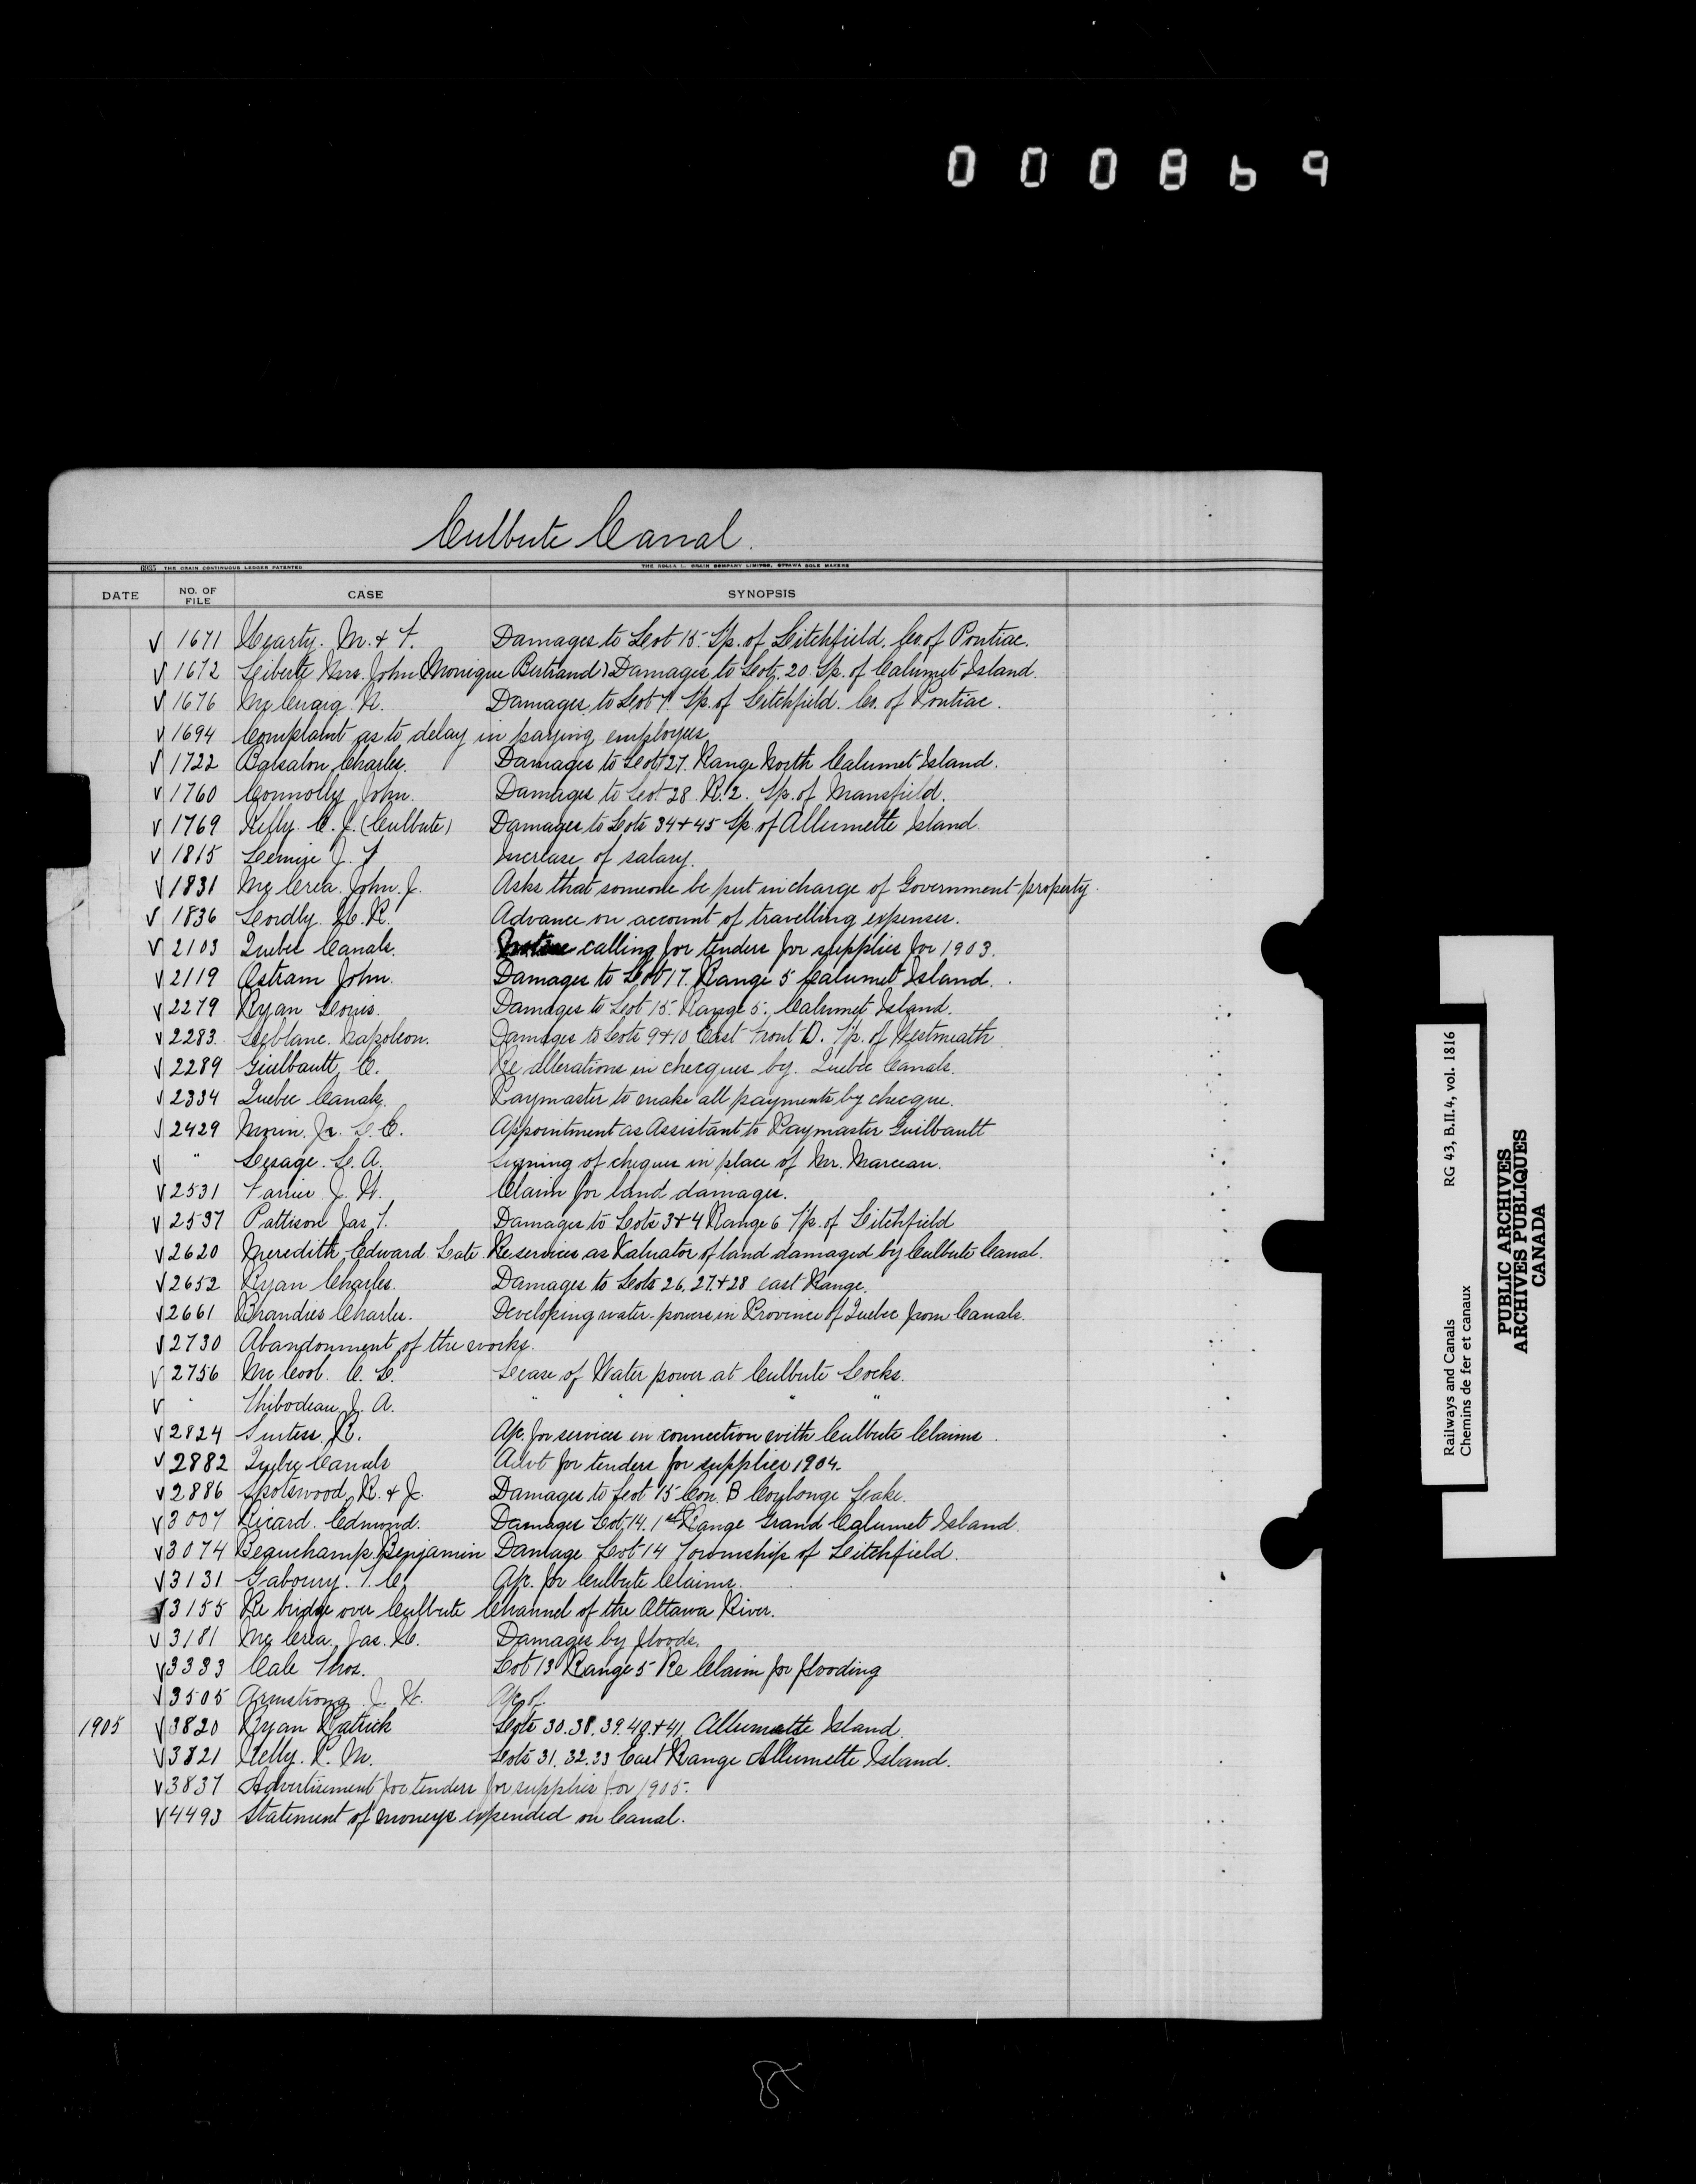 000869
Culbute Canal.
6935 THE CRAIN CONTINUOUS LEDGER PATENTED THE ROLLA L. CRAIN COMPANY LIMITED, OTTAWA SOLE MAKERS
DATE NO. OF FILE CASE SYNOPSIS
√ 1671 Hearty. M. & F. Damages to Lot 15. Tp. of Litchfield. Co. of Pontiac.
√ 1672 Liberté Mrs. John (Monique Bertrand) Damages to Lot. 20. Tp. of Calumet Island.
√ 1676 McCuaig. N. Damages to Lot 7. Tp. of Litchfield. Co. of Pontiac.
√ 1694 Complaint as to delay in paying employees
√ 1722 Balsalon Charles. Damages to Lot 27. Range North Calumet Island.
√ 1760 Connolly John. Damages to Lot 28. R. 2. Tp. of Mansfield.
√ 1769 Kelly. C. J. (Culbute) Damages to Lots 34 & 45 Tp. of Allumette Island.
√ 1815 J. Increase of salary.
√ 1831 McCrea. John. J. Asks that someone be put in charge of Government property.
√ 1836 Lordly. H. R. Advance on account of travelling expenses.
√ 2103 Quebec Canals. calling for tenders for supplies for 1903.
√ 2119 Ostram John. Damages to Lot 17. Range 5 Calumet Island.
√ 2279 Ryan Louis. Damages to Lot 15. Range 5. Calumet Island.
√ 2283 Leblanc. Napoleon. Damages to Lots 9 & 10 East Front D. Tp. of Westmeath
√ 2289 Guilbault, C. Re alterations in checques by. Quebec Canals.
√ 2334 Quebec Canals. Paymaster to make all payments by checque.
√ 2429 Morin. Jr. L. C. Appointment as Assistant to Paymaster Guilbault
√ " Lesage. L. A. Signing of cheques in place of Mr. Marceau.
√ 2531 Farrier J. W. Claim for land damages.
√ 2537 Pattison Jas. T. Damages to Lots 3 & 4 Range 6 Tp. of Litchfield
√ 2620 Meredith Edward Late. Re services as Valuator of land damaged by Culbute Canal.
√ 2652 Ryan Charles. Damages to Lots 26. 27. & 28 East Range.
√ 2661 Brandies Charles. Developing water-powers in Province of Quebec from Canals.
√ 2730 Abandonment of the works.
√ 2756 McCool. C. L. Lease of Water power at Culbute Locks.
√ " Thibodeau J. A. " " " " "
√ 2824 Surtess. R. A/c. for services in connection with Culbute Claims.
√ 2882 Quebec Canals Advt for tenders for supplies 1904.
√ 2886 Spotswood, R. & J. Damages to Lot 15 Con. B Coulonge Lake.
√ 3007 Ricard. Edmond. Damages Lot. 14. 1st Range Grand Calumet Island.
√ 3074 Beauchamp Benjamin Damage Lot 14 Township of Litchfield.
√ 3131 Gaboury. T. C. A/c. for Culbute Claims.
√ 3155 Re bridge over Culbute Channel of the Ottawa River.
√ 3181 McCrea. Jas. H. Damages by floods.
√ 3333 Cale Thos. Lot 13 Range 5 Re Claim for flooding
√ 3505 Armstrong J. H. A/c of.
1905 √ 3820 Ryan Patrick Lots 30. 38. 39. 40. & 41. Allumette Island.
√ 3821 Kelly. P. M. Lots 31. 32. 33 East Range Allumette Island.
√ 3837 Advertisement for tenders for supplies for 1905.
√ 4493 Statement of moneys expended on Canal.
Railways and Canals RG 43, B.II.4, vol. 1816
Chemins de fer et canaux
PUBLIC ARCHIVES
ARCHIVES PUBLIQUES
CANADA